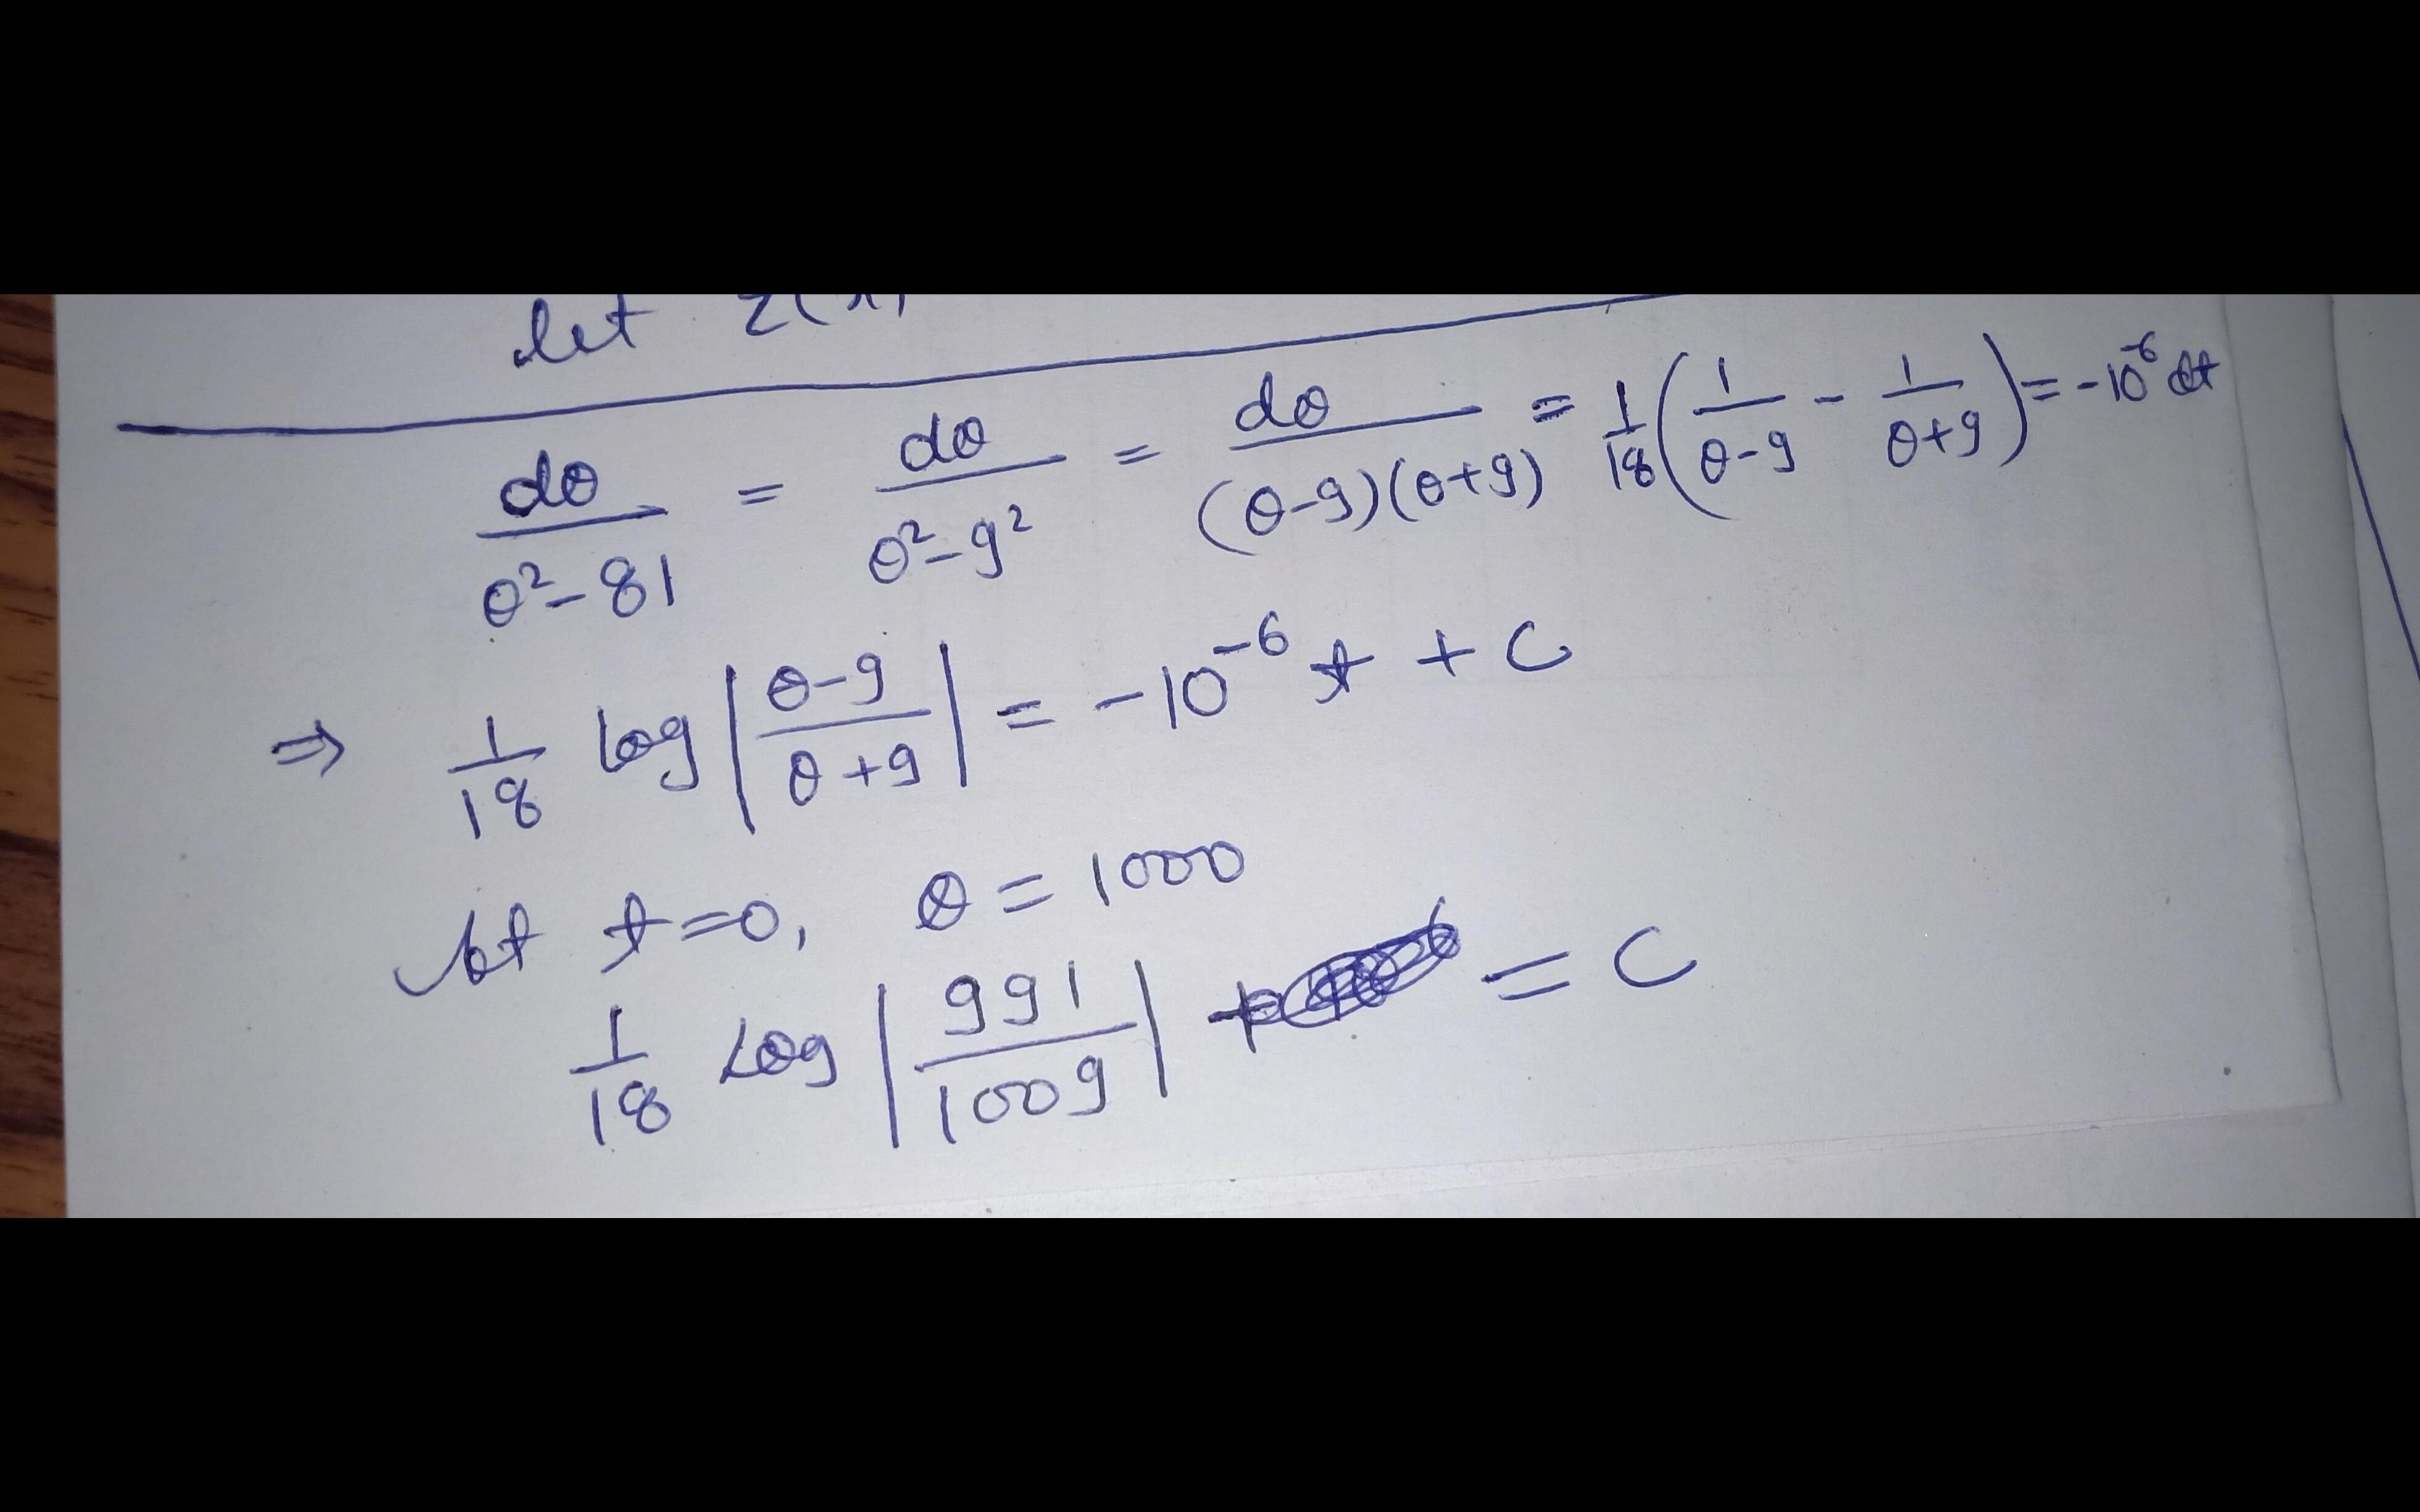 let
dθ/(θ²-81) = dθ/(θ²-9²) = dθ/((θ-9)(θ+9)) = 1/18 (1/(θ-9) - 1/(θ+9)) = -10⁻⁶ dt
⇒ 1/18 log |(θ-9)/(θ+9)| = -10⁻⁶ t + C
At t=0, θ = 1000
1/18 Log |991/1009| = C